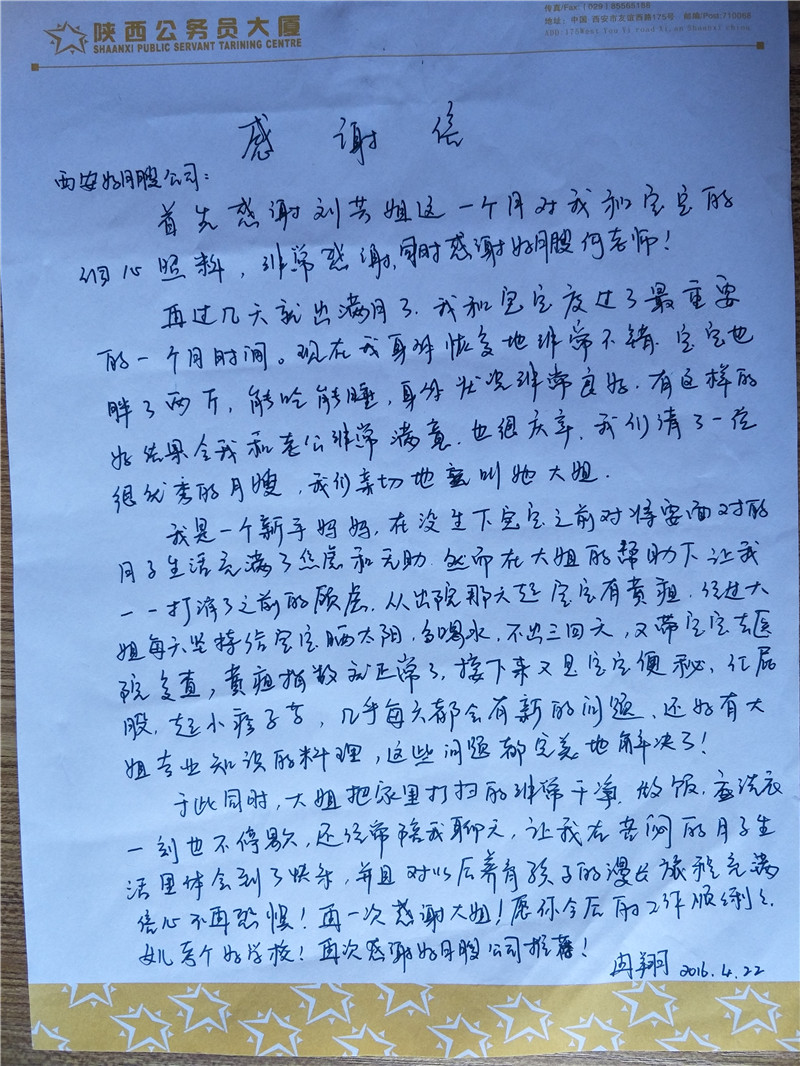 陕西公务员大厦
SHAANXI PUBLIC SERVANT TARINING CENTRE
传真/Fax: (029) 85565186
地址: 中国 西安市友谊西路175号 邮编/Post:710068
ADD:175West You Yi road Xi,an Shaanxi china
感谢信
西安好月嫂公司:
首先感谢刘芸姐这一个月对我和宝宝的
细心照料,非常感谢,同时感谢好月嫂何老师!
再过几天就出满月了,我和宝宝度过了最重要
的一个月时间。现在我身体恢复地非常不错,宝宝也
胖了两斤,能吃能睡,身体状况非常良好.有这样的
好结果令我和老公非常满意.也很庆幸,我们请了一位
很优秀的月嫂,我们亲切地叫她大姐.
我是一个新手妈妈,在没生下宝宝之前对将要面对的
月子生活充满了焦虑和无助.然而在大姐的帮助下让我
一一打消了之前的顾虑.从出院那天起宝宝有黄疸.经过大
姐每天坚持给宝宝晒太阳,多喝水,不出三四天,又带宝宝去医
院复查,黄疸指数就正常了,接下来又是宝宝便秘,红屁
股,起小疹子等,几乎每天都会有新的问题,还好有大
姐专业知识的料理,这些问题都完美地解决了!
于此同时,大姐把家里打扫的非常干净,做饭,洗衣
一刻也不停歇,还经常陪我聊天,让我在苦闷的月子生
活里体会到了快乐,并且对以后养育孩子的漫长旅程充满
信心不再恐惧!再一次感谢大姐!愿你今后的工作顺利,
女儿考个好学校!再次感谢好月嫂公司推荐!
冉翔 2016.4.22